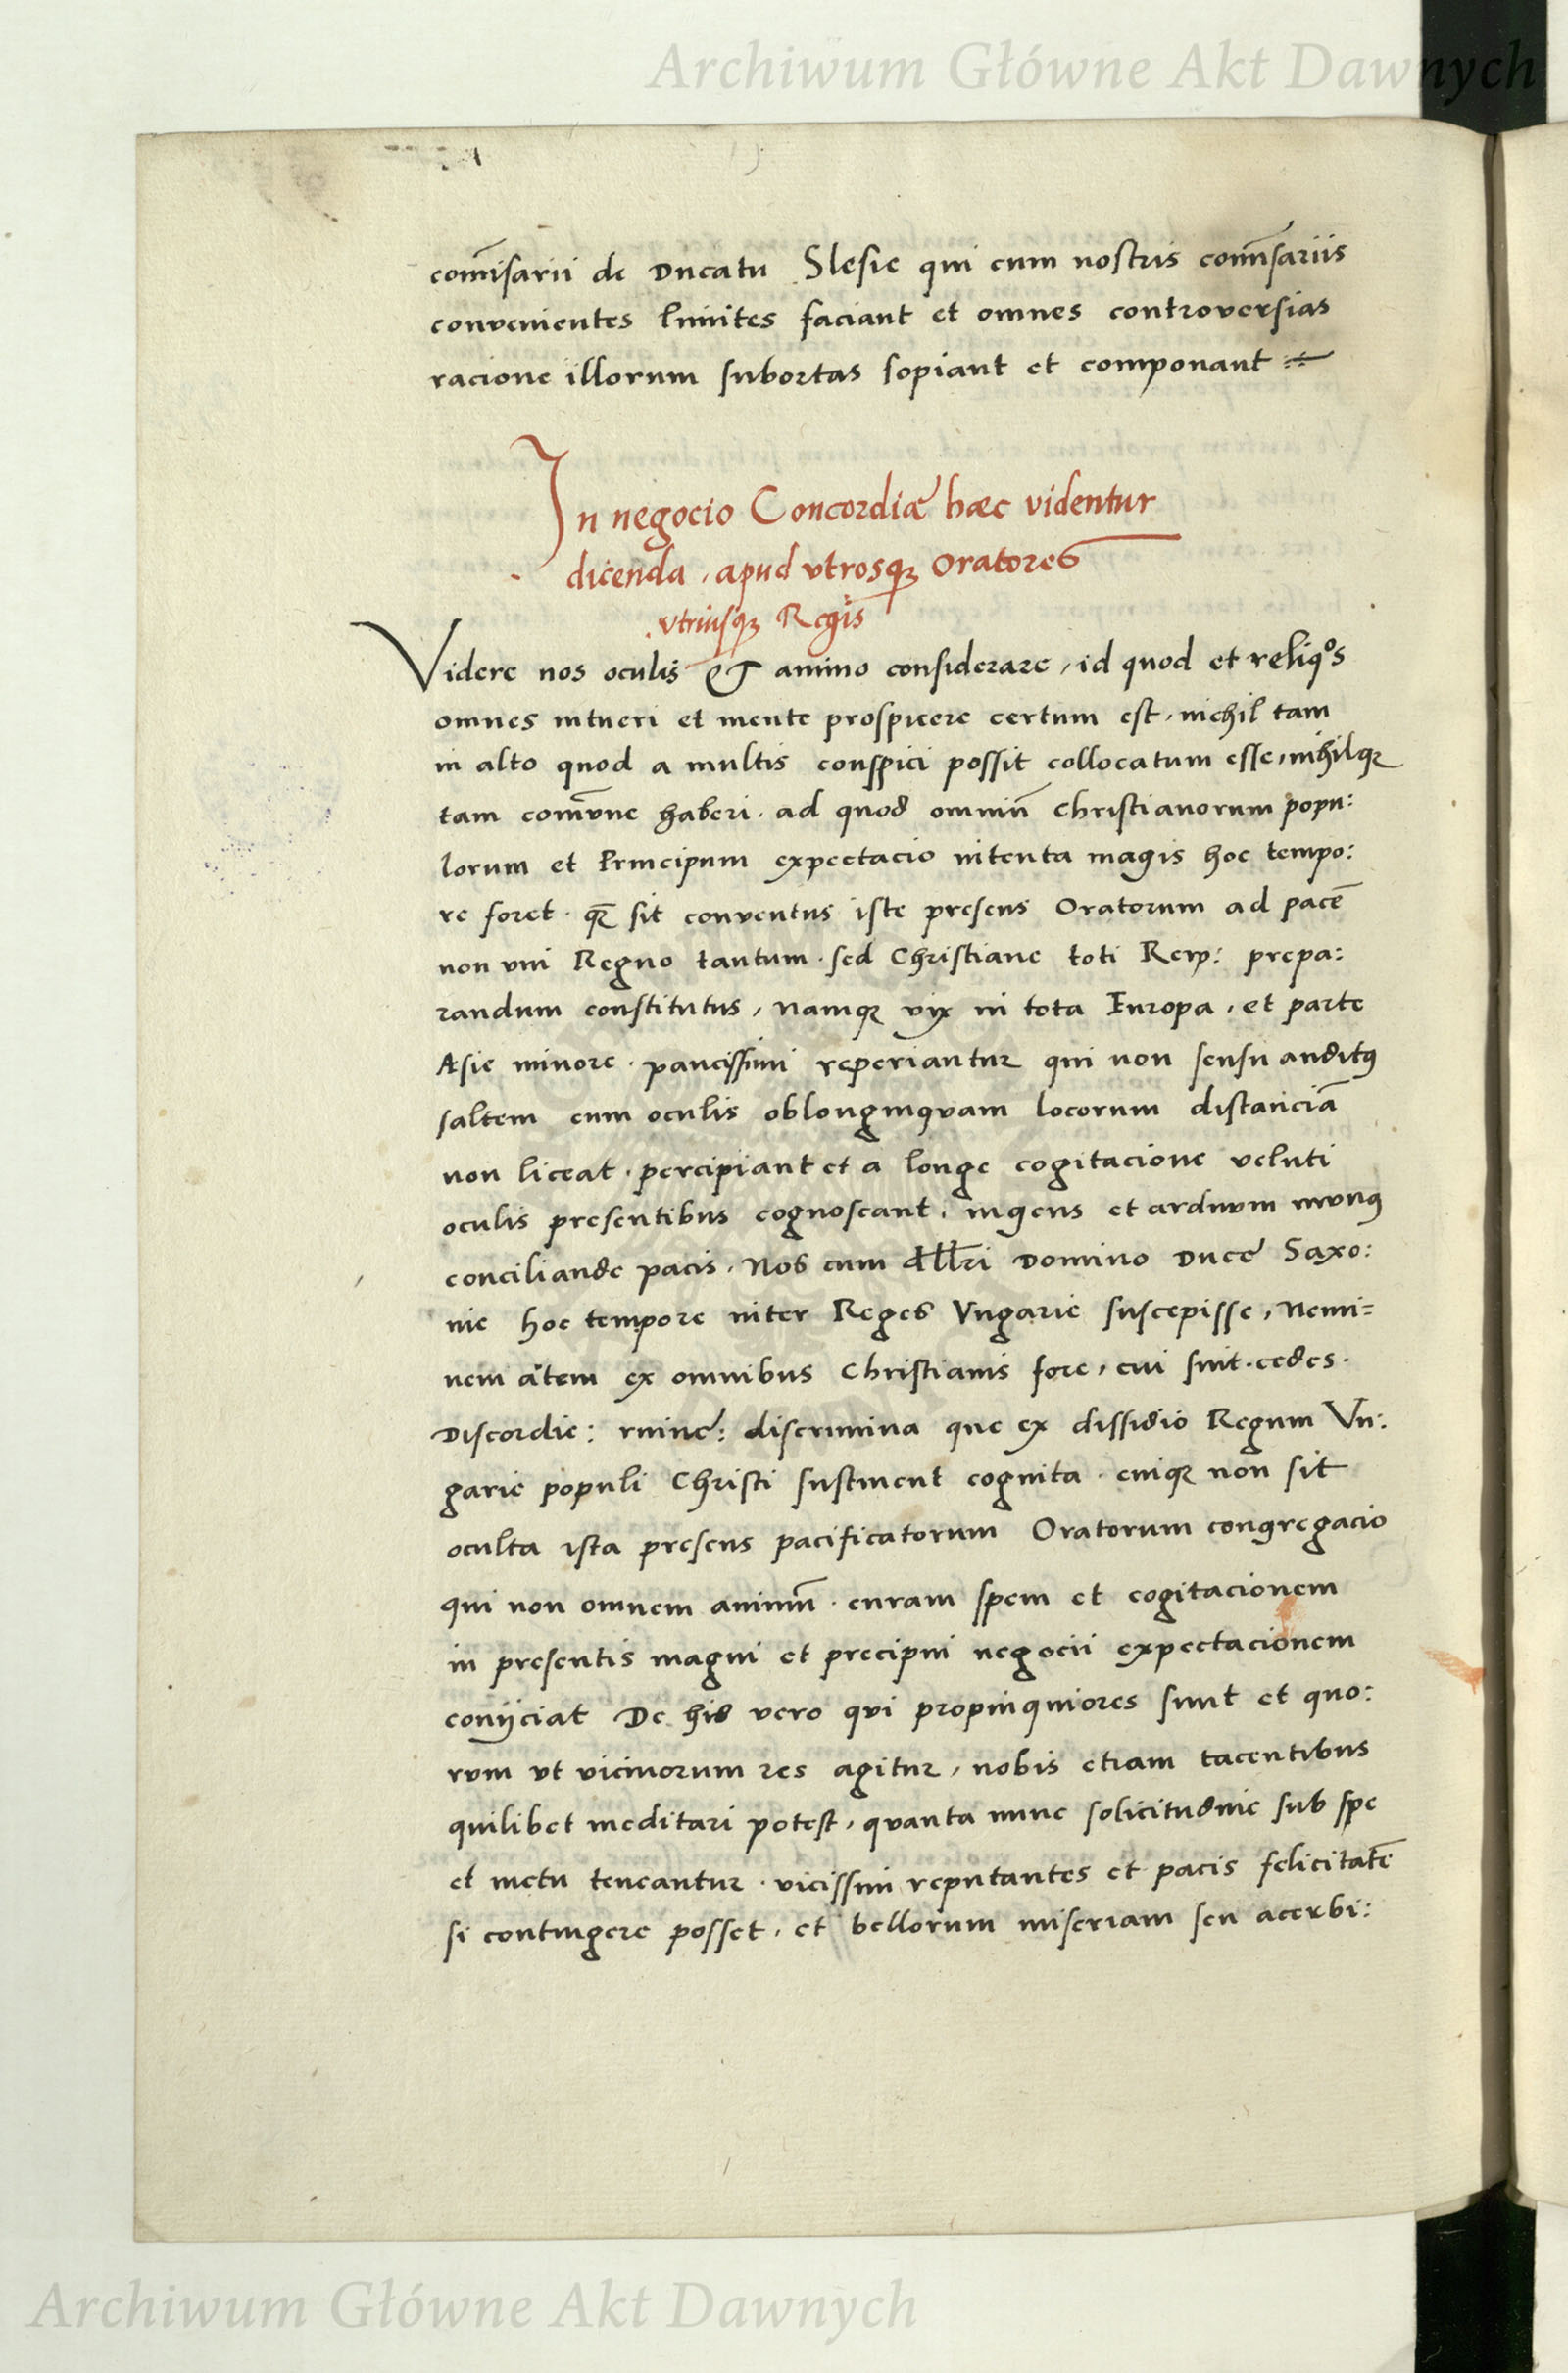 Archiwum Główne Akt Dawnych
com̄isarii de Ducatu Slesie qui cum nostris com̄isariis
convenientes limites faciant et omnes controversias
racione illorum subortas sopiant et componant
In negocio Concordiæ hæc videntur
dicenda, apud vtrosqꝫ Oratores
vtriusqꝫ Regis
Videre nos oculis et animo considerare, id quod et reliqᵒs
omnes intueri et mente prospicere certum est, nichil tam
in alto quod a multis conspici possit collocatum esse, nihilqꝫ
tam com̄vne haberi, ad quod omniū Christianorum popu:
lorum et Principum expectacio intenta magis hoc tempo:
re foret. qꝫ sit conventus iste presens Oratorum ad pacē
non vni Regno tantum. sed Christiane toti Reip: prepa:
randum constitutus, namqꝫ vix in tota Europa, et parte
Asie minore. paucissimi reperiantur qui non sensu auditꝰ
saltem cum oculis oblonginqvam locorum distanciā
non liceat. percipiant et a longe cogitacione veluti
oculis presentibus cognoscant, ingens et arduum mvnꝰ
conciliande pacis. Nos cum Illri Domino Duce Saxo:
nie hoc tempore inter Reges Vngarie suscepisse, Nemi=
nem āutem ex omnibus Christianis fore, cui sint. cedes.
Discordie: ruine: discrimina que ex dissidio Regum Vn:
garie populi Christi sustinent cognita. cuiqꝫ non sit
oculta ista presens pacificatorum Oratorum congregacio
qui non omnem animū. curam spem et cogitacionem
in presentis magni et precipui negocii expectacionem
conijciat De his vero qvi propinquiores sunt et quo:
rvm vt vicinorum res agitur, nobis etiam tacentibus
quilibet meditari potest, qvanta nunc solicitudine sub spe
et metu teneantur. vicissim reputantes et pacis felicitatē
si contingere posset, et bellorum miseriam seu acerbi:
Archiwum Główne Akt Dawnych